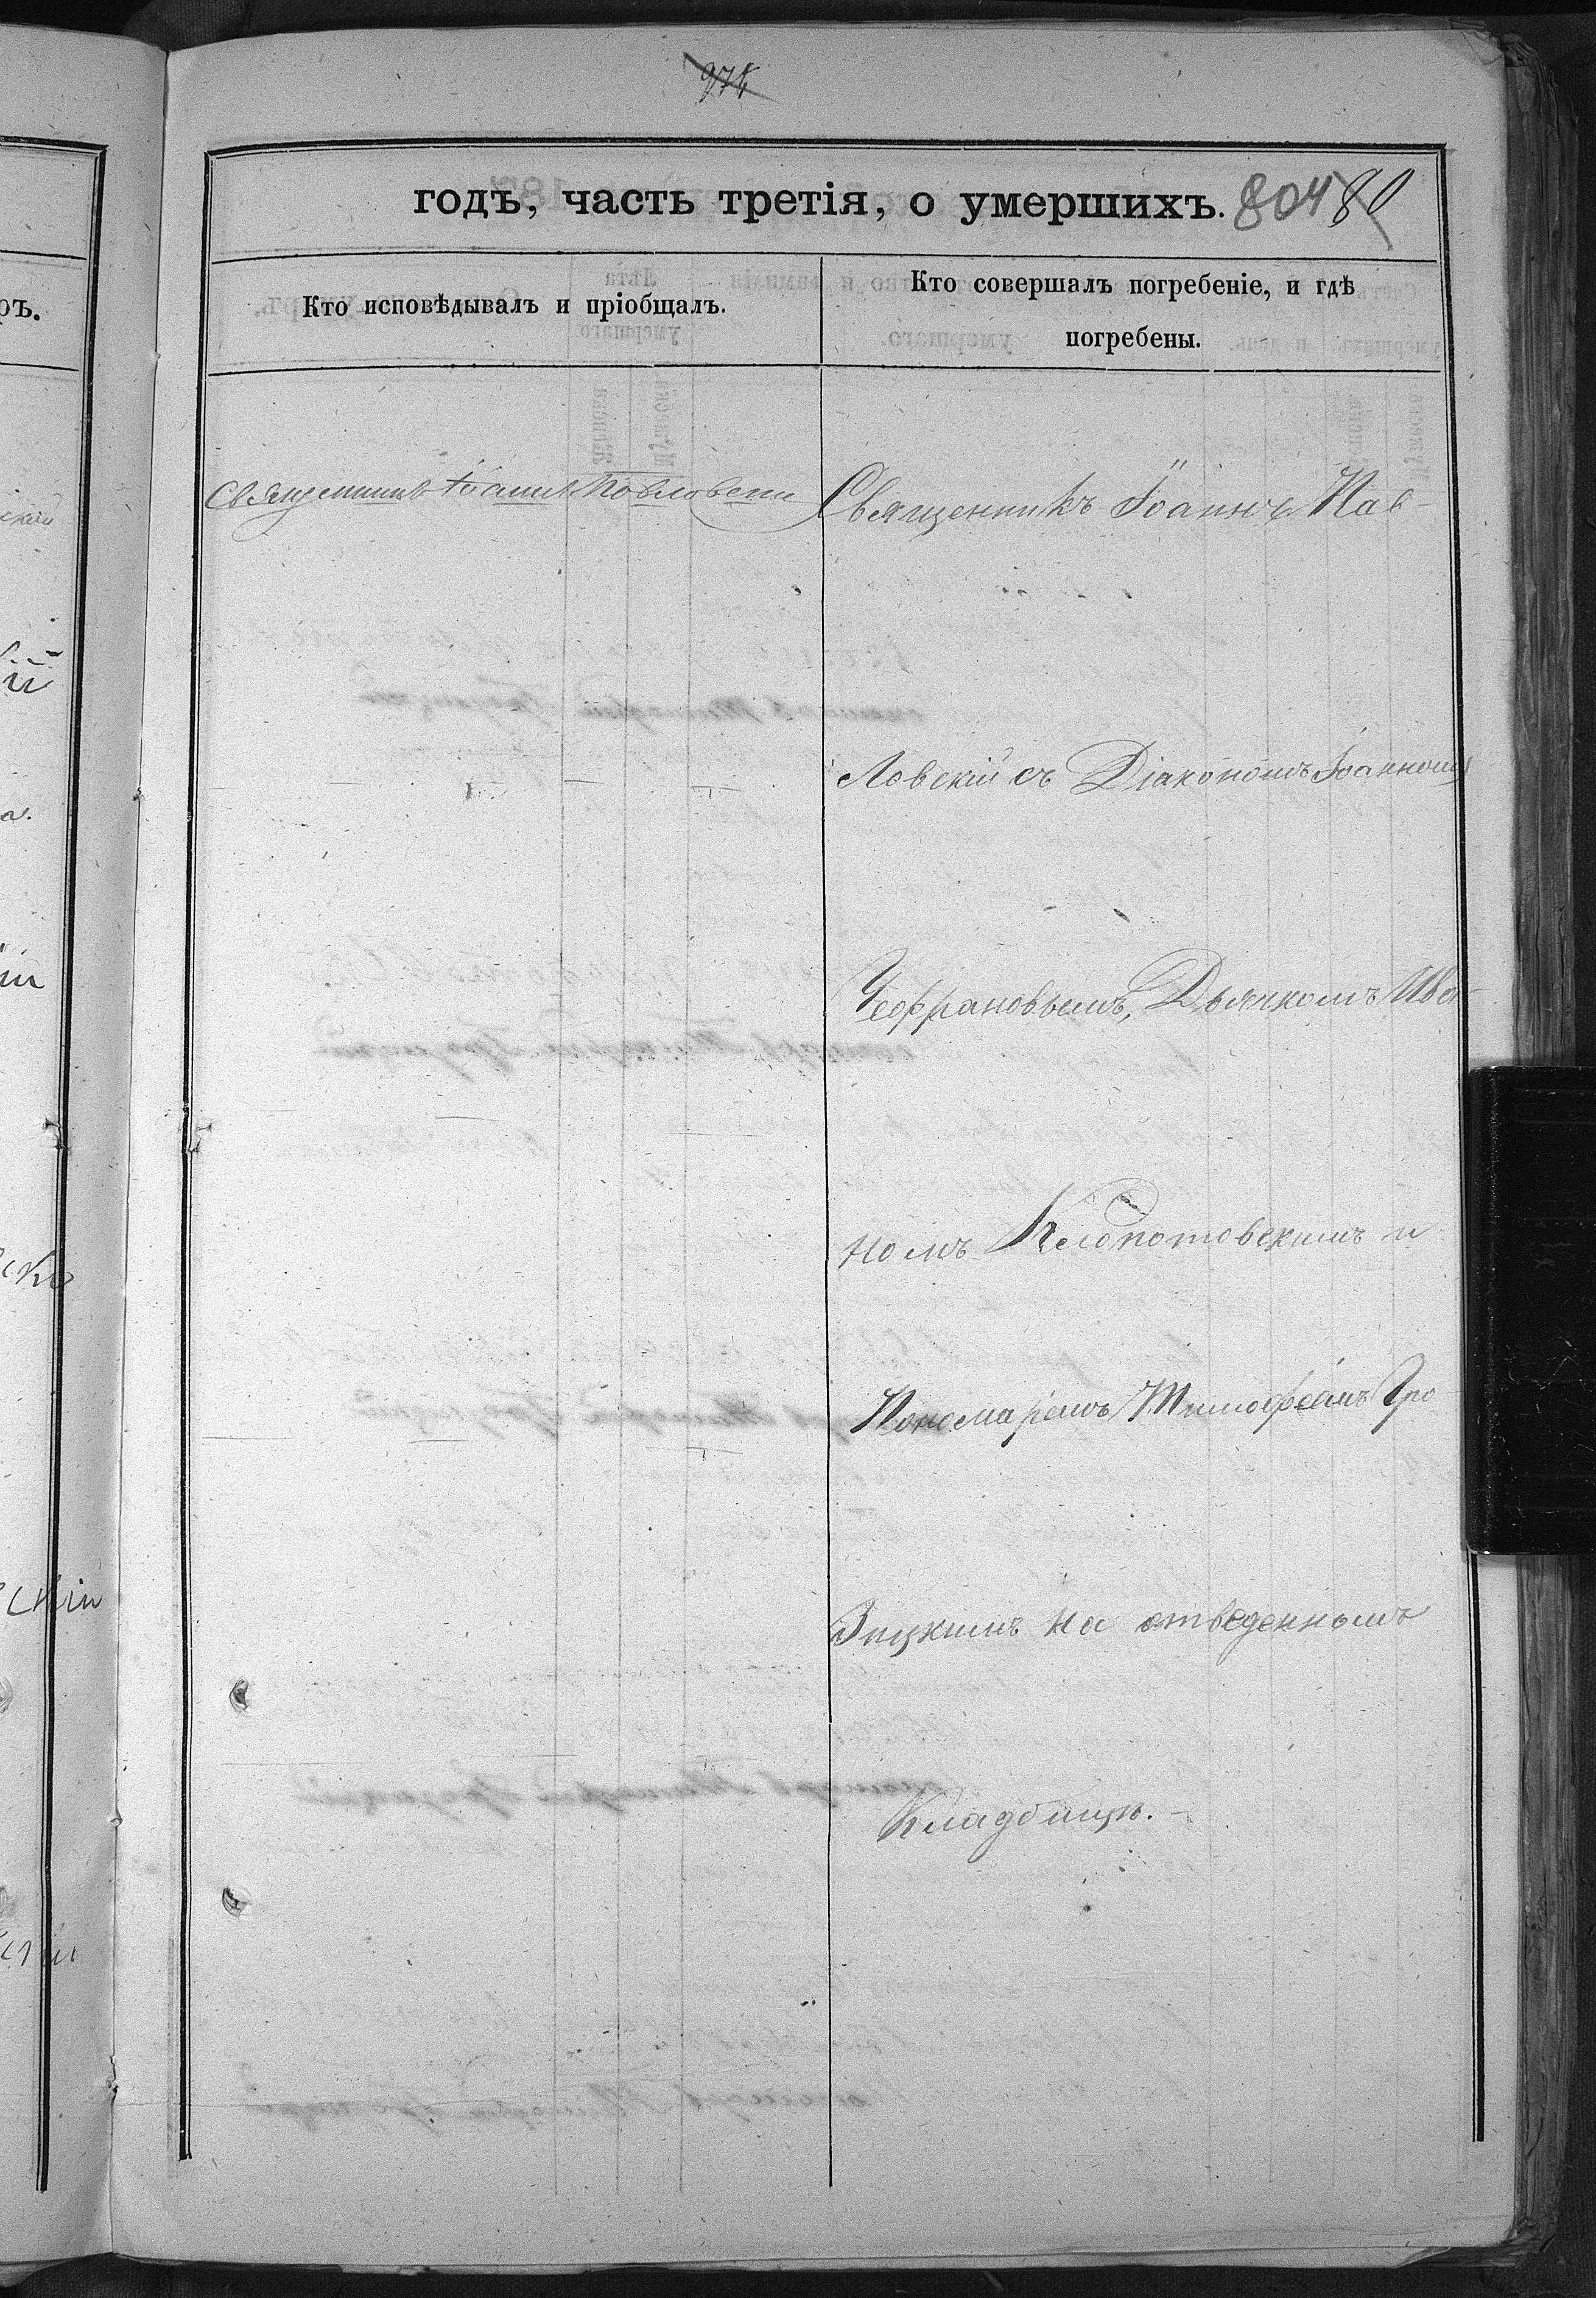 974
годъ, часть третія, о умершихъ. 804 80
Кто исповѣдывалъ и пріобщалъ.
Кто совершалъ погребеніе, и гдѣ
погребены.
Священникъ Іоаннъ Павловскій
Священникъ Іоаннъ Пав-
ловскій съ Діакономъ Іоанномъ
Чефрановымъ, Дьячкомъ Ива-
номъ Клопотовскимъ и
Пономаремъ Тимофеемъ Гро
зицкимъ на отведенномъ
Кладбищѣ. -